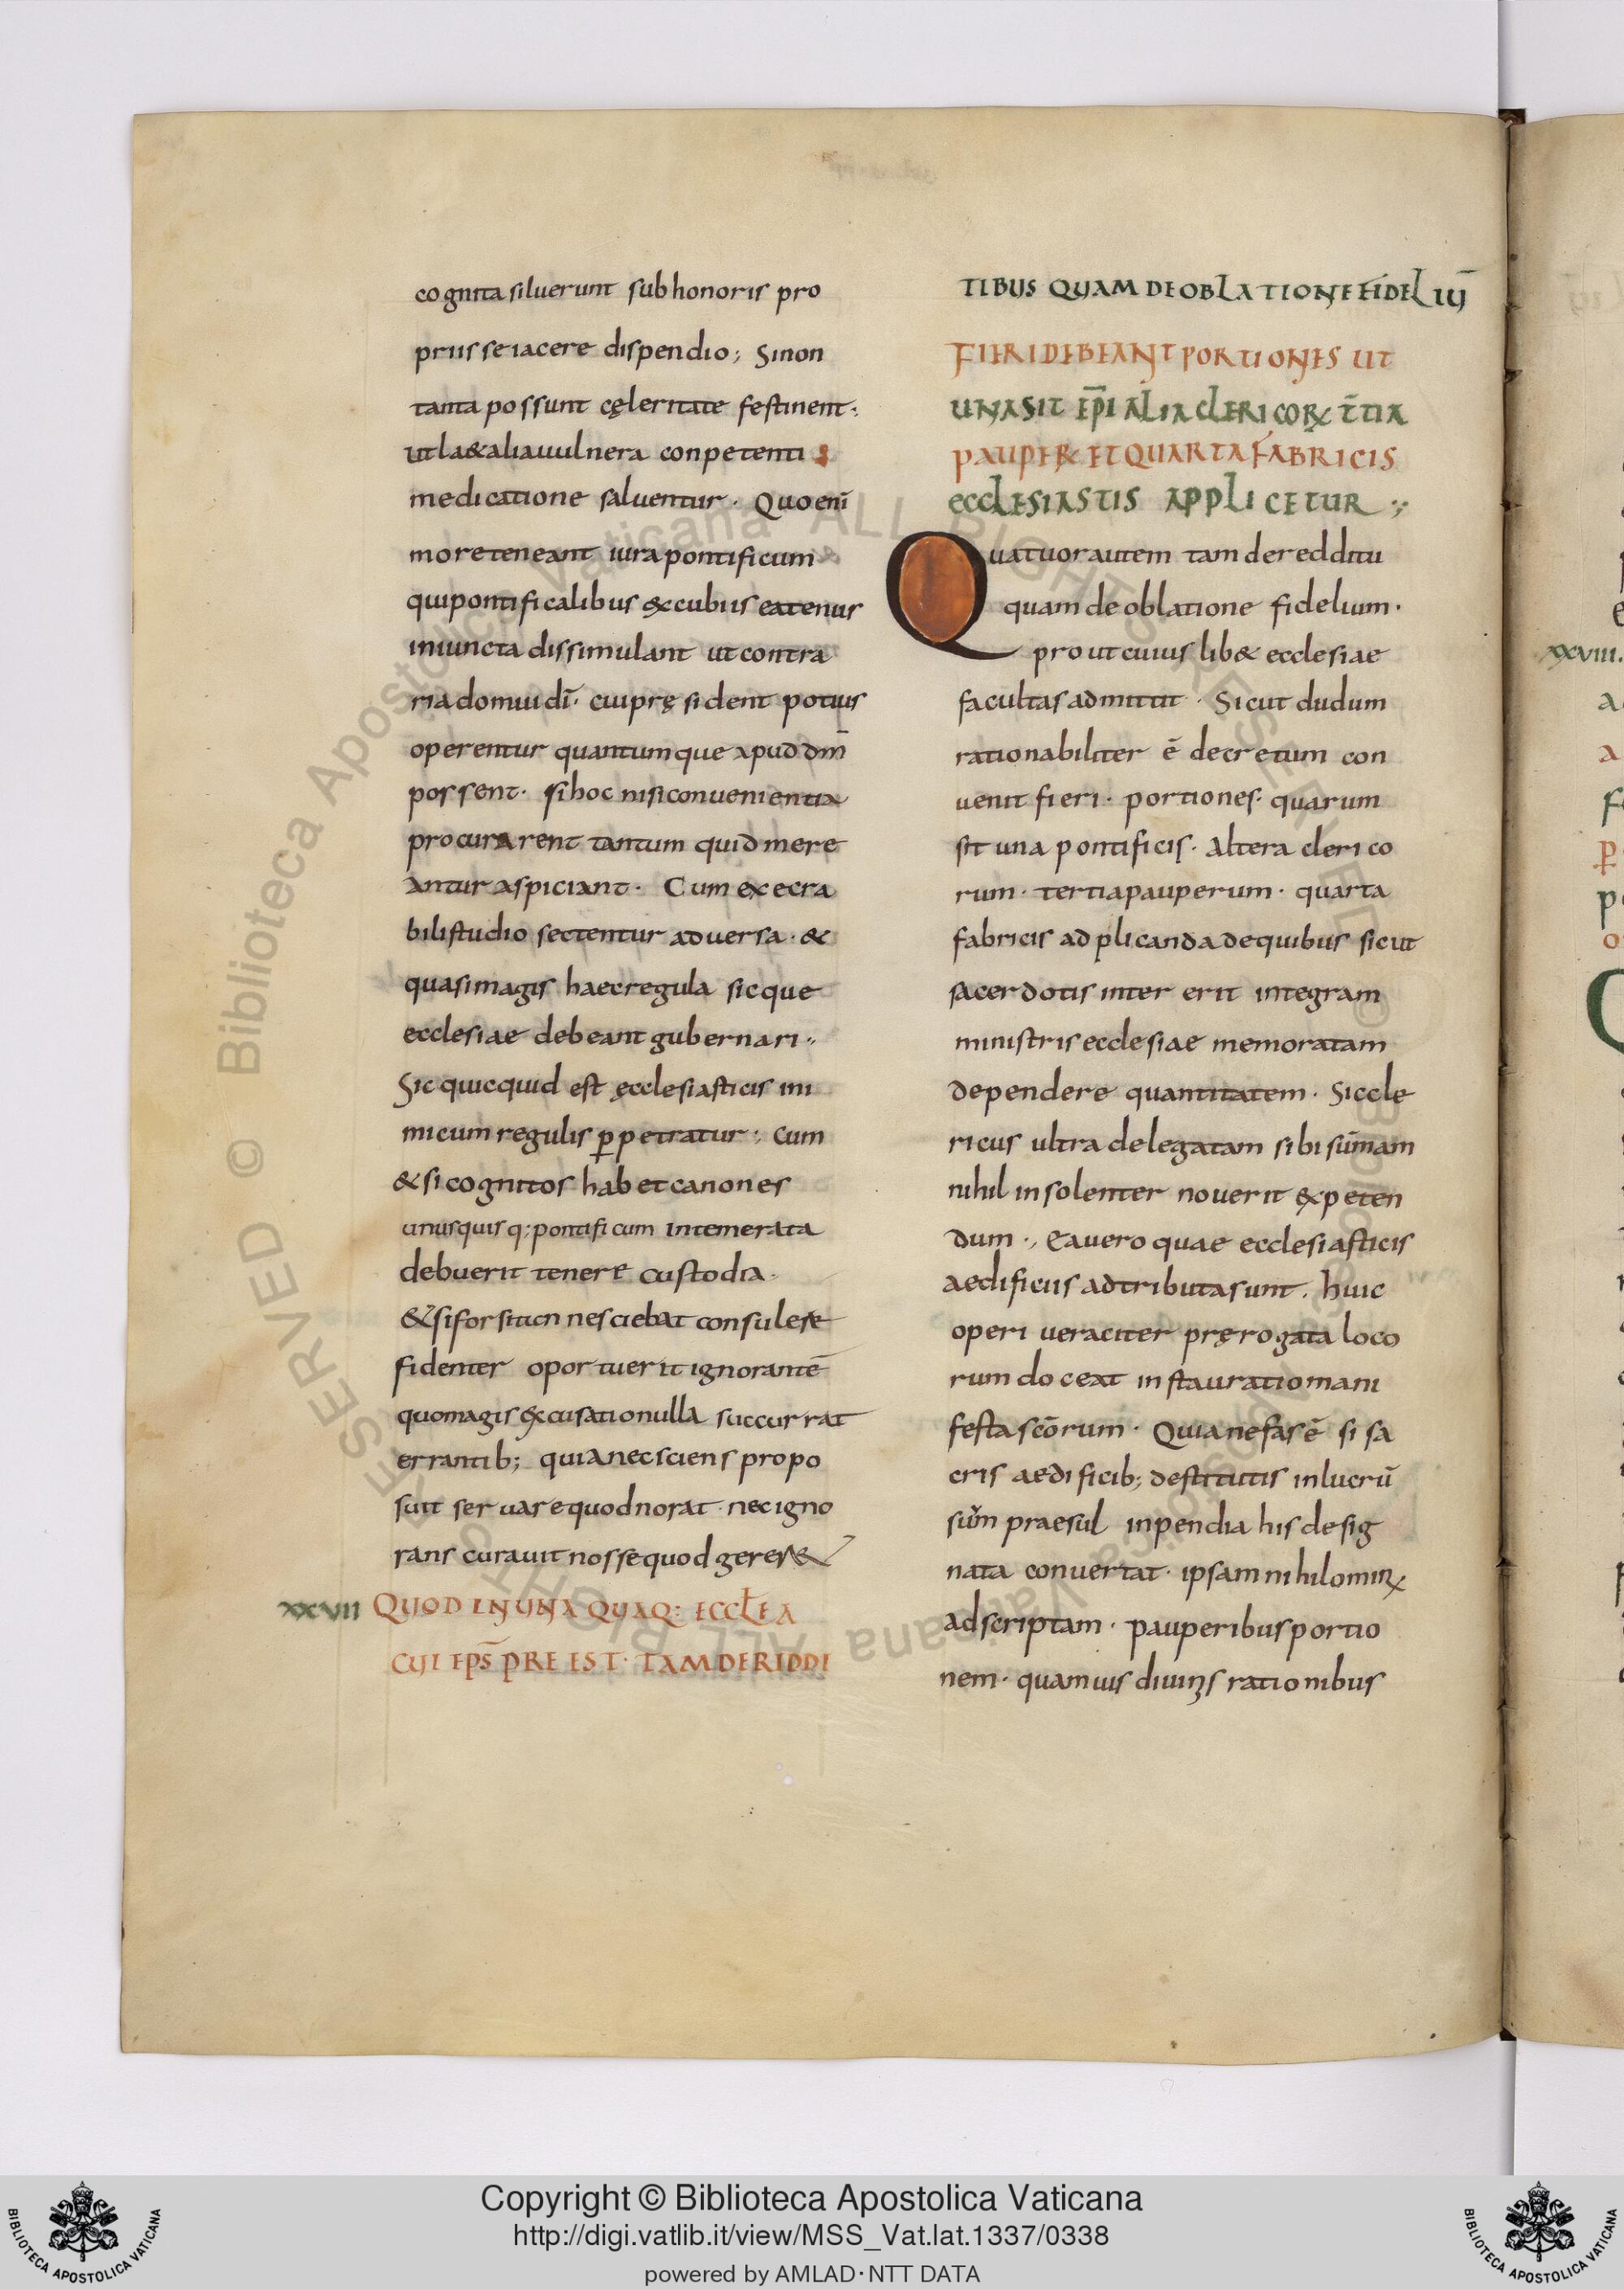 cognita siluerunt sub honoris pro
priis se iacere dispendio; Si non
tanta possunt cęleritate festinent;
ut la&alia uulnera conpetenti
medicatione saluentur. Quo enī
more teneant iura pontificum
qui pontificalibus excubiis eatenus
iniuncta dissimulant ut contra
ria domui dī. cui pręsident potius
operentur quantumque apud dm̄
possent. si hoc nisi conuenientia
procurarent tantum quid mere
antur aspiciant. Cum execra
bili studio sectentur aduersa. &
quasi magis haec regula sicque
ecclesiae debeant gubernari.
Sic quicquid est ęcclesiasticis ini
micum regulis ꝑpetratur; Cum
& si cognitos habet canones
unusquisq; pontificum intemerata
debuerit tenere custodia.
& si forsitan nesciebat consulere
fidenter oportuerit ignorantē
quo magis excusatio nulla succurrat
errantib; quia nec sciens propo
suit seruare quod norat. nec igno
rans curauit nosse quod geres&
XXVII QUOD IN UNAQUAQ: ECCŁEA
CUI EPS̄ PREEST. TAM DE RIDDI
TIBUS QUAM DE OBLATIONE FIDELIŪ
FIERI DEBEANT PORTIONES UT
UNA SIT EPĪ ALIA CLERICORꝜ T̄TIA
PAUPERꝜ ET QUARTA FABRICIS
ECCLESIASTIS APPLICETUR
Quatuor autem tam de redditu
quam de oblatione fidelium.
prout cuiuslib& ecclesiae
facultas admittit. Sicut dudum
rationabiliter ē decretum con
uenit fieri. portiones. quarum
sit una pontificis. Altera clerico
rum. tertia pauperum. quarta
fabricis adplicanda de quibus sicut
sacerdotis intererit integram
ministris ecclesiae memoratam
dependere quantitatem. Sic cle
ricus ultra delegatam sibi sūmam
nihil insolenter nouerit expeten
dum. Ea uero quae ecclesiasticis
aedificiis adtributa sunt. huic
operi ueraciter pręrogata loco
rum doceat instauratio mani
festa scōrum. Quia nefas ē si sa
cris aedificib; destitutis in lucrū
sūm praesul inpendia his desig
nata conuertat. ipsam nihilominꝰ
adscriptam. pauperibus portio
nem. quamuis diuinis rationibus
XXVIII.
© Biblioteca Apostolica Vaticana ALL RIGHTS RESERVED
Copyright © Biblioteca Apostolica Vaticana
http://digi.vatlib.it/view/MSS_Vat.lat.1337/0338
powered by AMLAD·NTT DATA
BIBLIOTECA APOSTOLICA VATICANA
BIBLIOTECA APOSTOLICA VATICANA